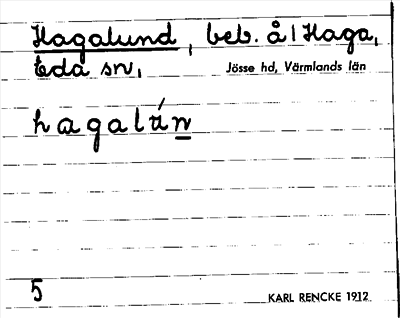 Hagalund, beb. å 1 Haga,
Eda sn,
Jösse hd, Värmlands län
hagalún
5
KARL RENCKE 1912